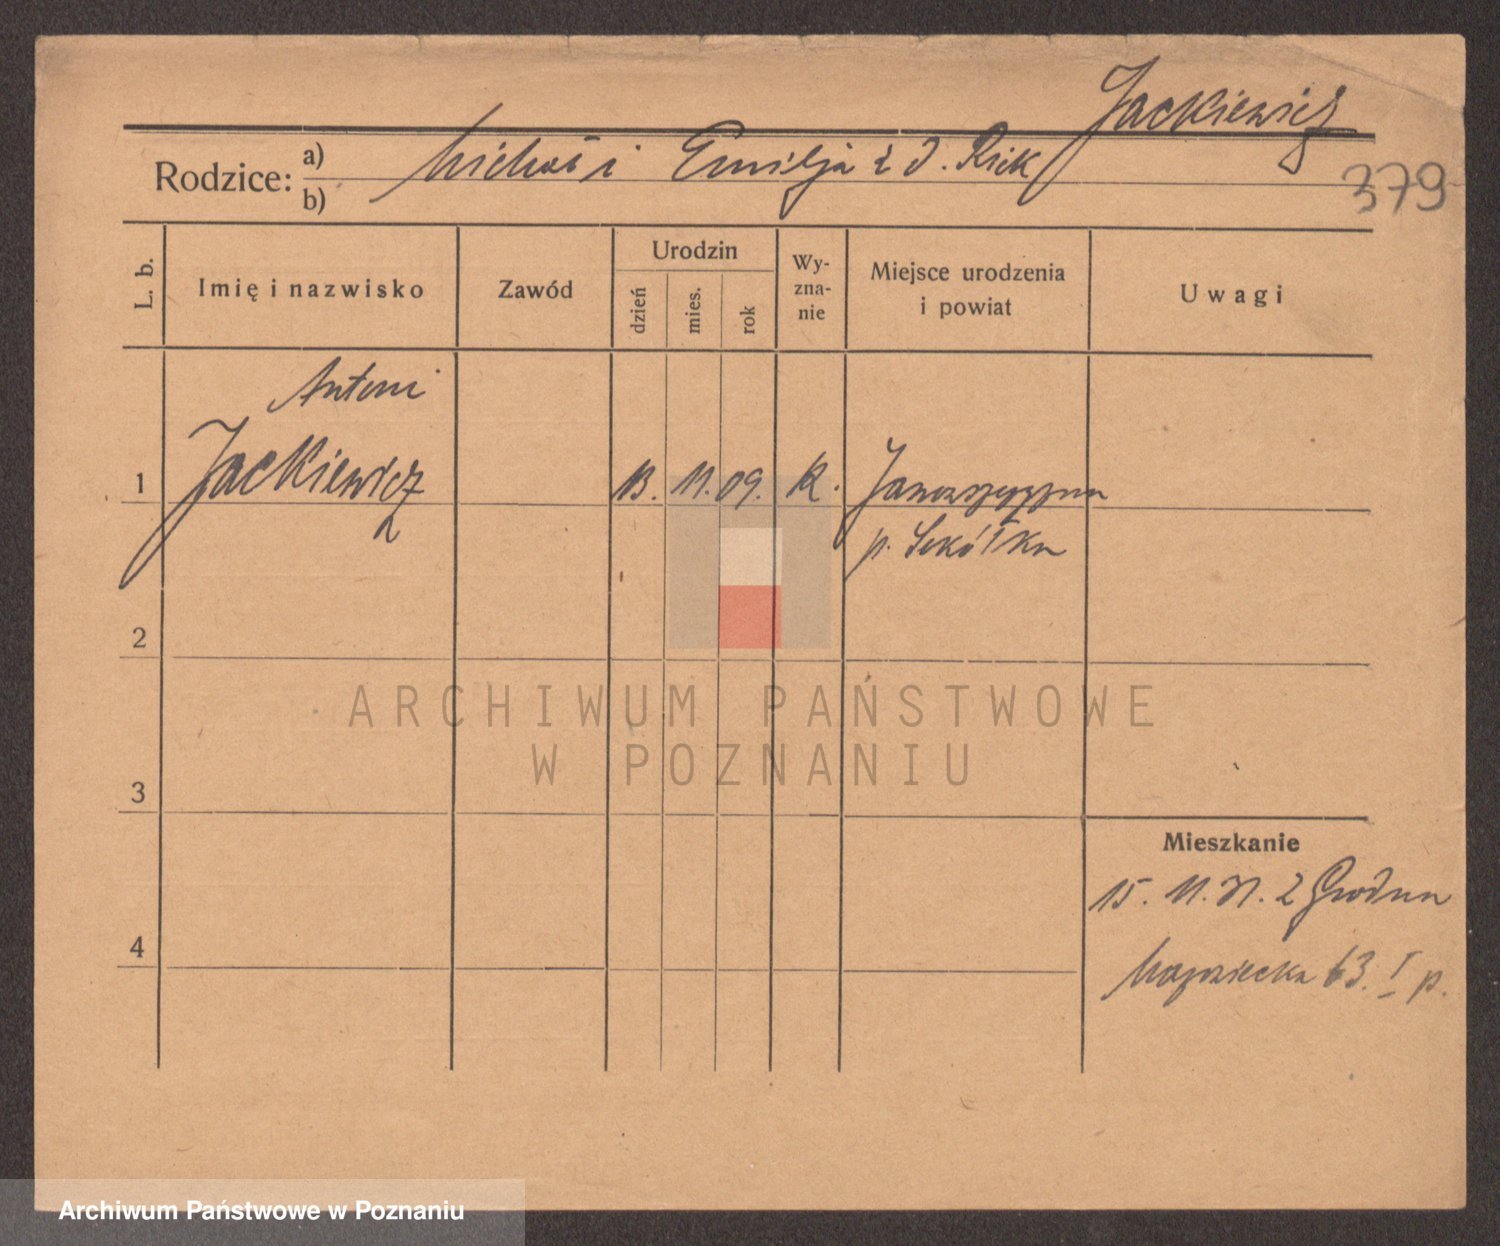 Jackiewicz
Rodzice: a) Michał i Emilja z d.
b)
379
L. b.
Imię i nazwisko
Zawód
Urodzin
dzień
mies.
rok
Wy-
zna-
nie
Miejsce urodzenia
i powiat
Uwagi
Antoni
1 Jackiewicz 13. 11. 09. K.
p. Sokółka
2
3
4
ARCHIWUM PAŃSTWOWE
W POZNANIU
Mieszkanie
15. 11. 31. z Grodna
63. I p.
Archiwum Państwowe w Poznaniu